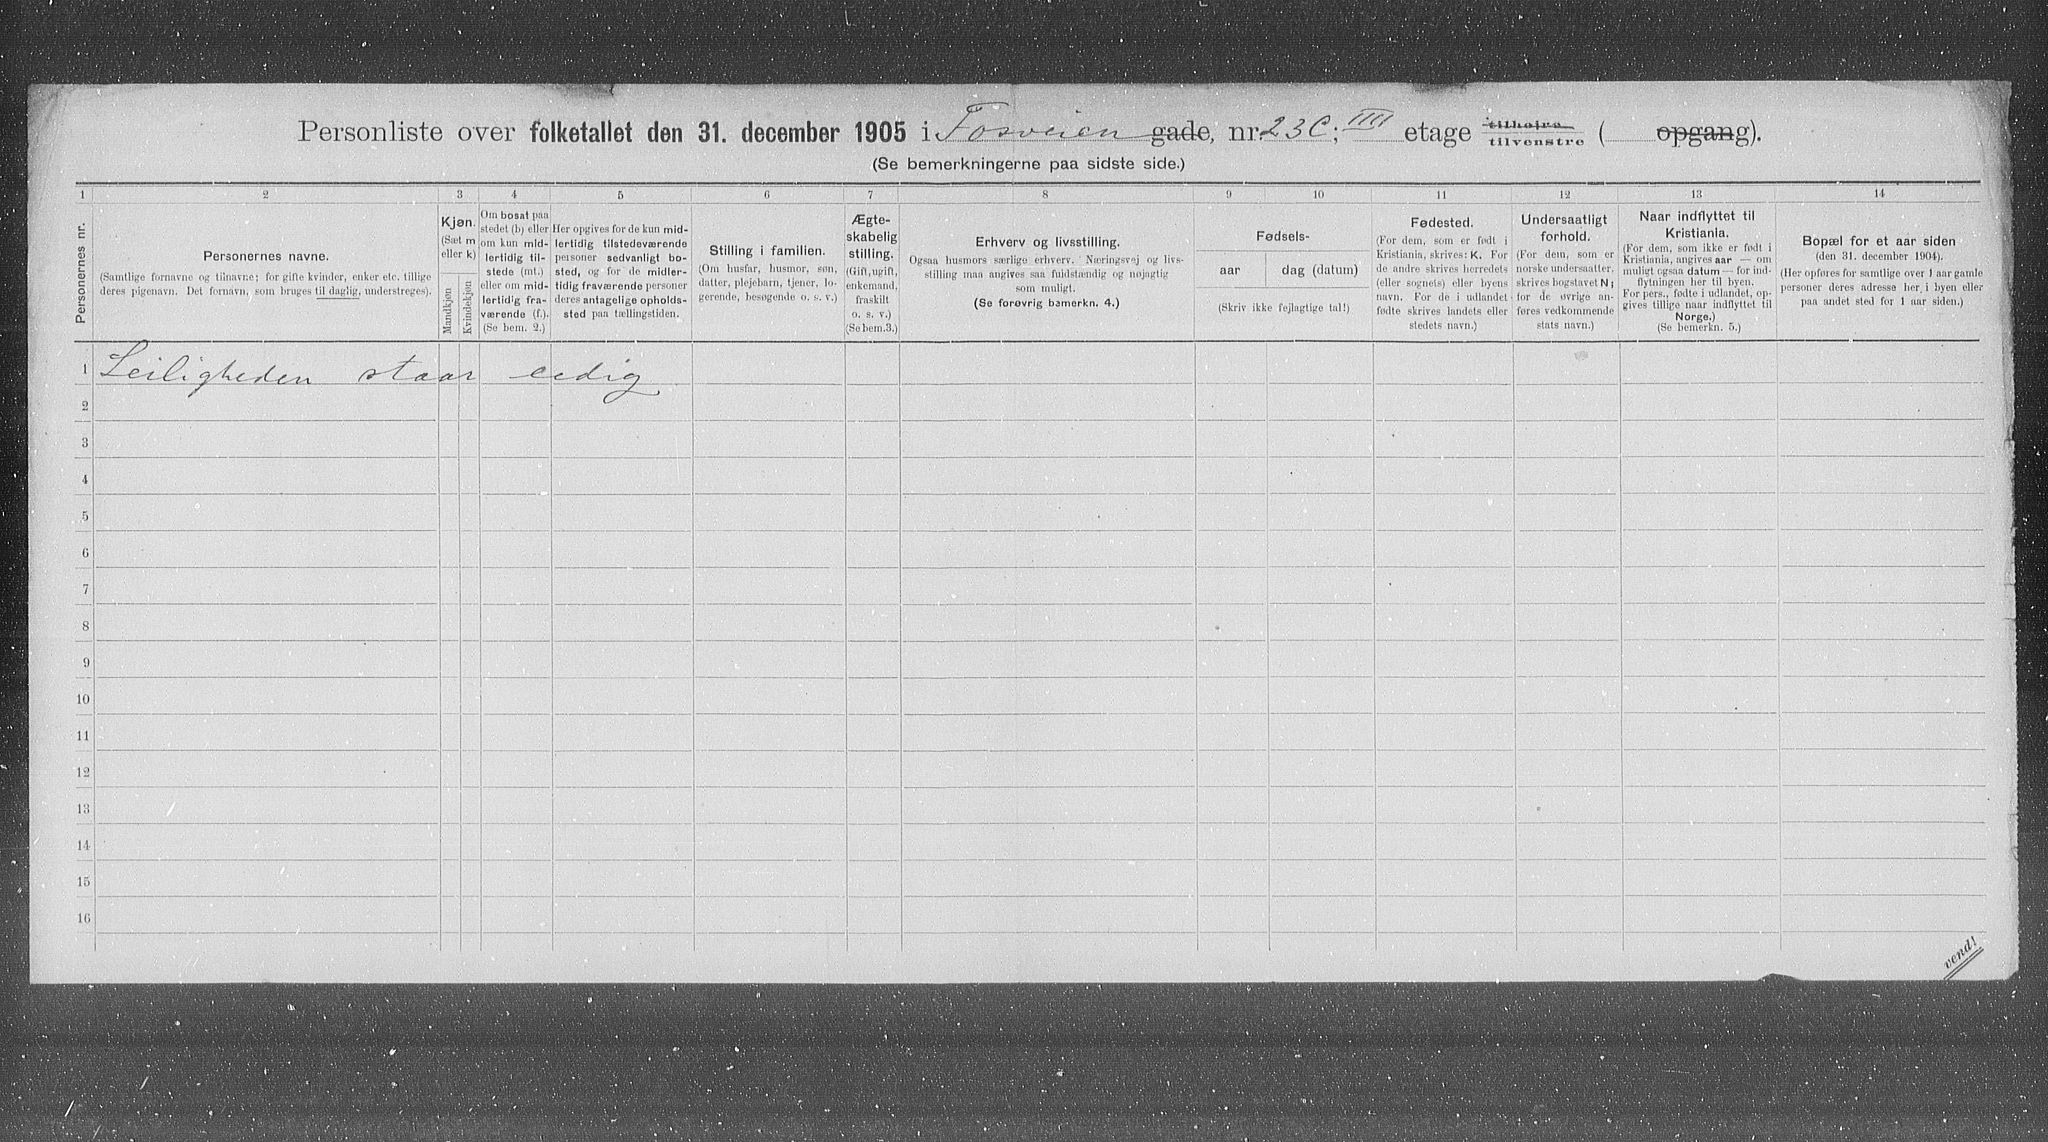 Personliste over folketallet den 31. december 1905 i Fosveien gade, nr. 23C; IIII etage tilhøire tilvenstre ( opgang).
(Se bemerkningerne paa sidste side.)
1 2 3 4 5 6 7 8 9 10 11 12 13 14
Personernes nr.
Personernes navne.
(Samtlige fornavne og tilnavne; for gifte kvinder, enker etc. tillige
deres pigenavn. Det fornavn, som bruges til daglig, understreges).
Kjøn.
(Sæt m
eller k)
Mandkjøn
Kvindekjøn
Om bosat paa
stedet (b) eller
om kun mid-
lertidig til-
stede (mt.)
eller om mid-
lertidig fra-
værende (f.).
(Se bem. 2.)
Her opgives for de kun mid-
lertidig tilstedeværende
personer sedvanligt bo-
sted, og for de midler-
tidig fraværende personer
deres antagelige opholds-
sted paa tællingstiden.
Stilling i familien.
(Om husfar, husmor, søn,
datter, plejebarn, tjener, lo-
gerende, besøgende o. s. v.)
Ægte-
skabelig
stilling.
(Gift, ugift,
enkemand,
fraskilt
o. s. v.)
(Se bem. 3.)
Erhverv og livsstilling.
Ogsaa husmors særlige erhverv. Næringsvej og livs-
stilling maa angives saa fuldstændig og nøjagtig
som muligt.
(Se forøvrig bemerkn. 4.)
Fødsels-
aar
dag (datum)
(Skriv ikke fejlagtige tal!)
Fødested.
(For dem, som er født i
Kristiania, skrives: K. For
de andre skrives herredets
(eller sognets) eller byens
navn. For de i udlandet
fødte skrives landets eller
stedets navn.)
Undersaatligt
forhold.
(For dem, som er
norske undersaatter,
skrives bogstavet N;
for de øvrige an-
føres vedkommende
stats navn.)
Naar indflyttet til
Kristiania.
(For dem, som ikke er født i
Kristiania, angives aar — om
muligt ogsaa datum — for ind-
flytningen her til byen.
For pers., fødte i udlandet, op-
gives tillige naar indflyttet til
Norge.)
(Se bemerkn. 5.)
Bopæl for et aar siden
(den 31. december 1904).
(Her opføres for samtlige over 1 aar gamle
personer deres adresse her i byen eller
paa andet sted for 1 aar siden.)
1 Leiligheden staar ledig
2
3
4
5
6
7
8
9
10
11
12
13
14
15
16
vend!